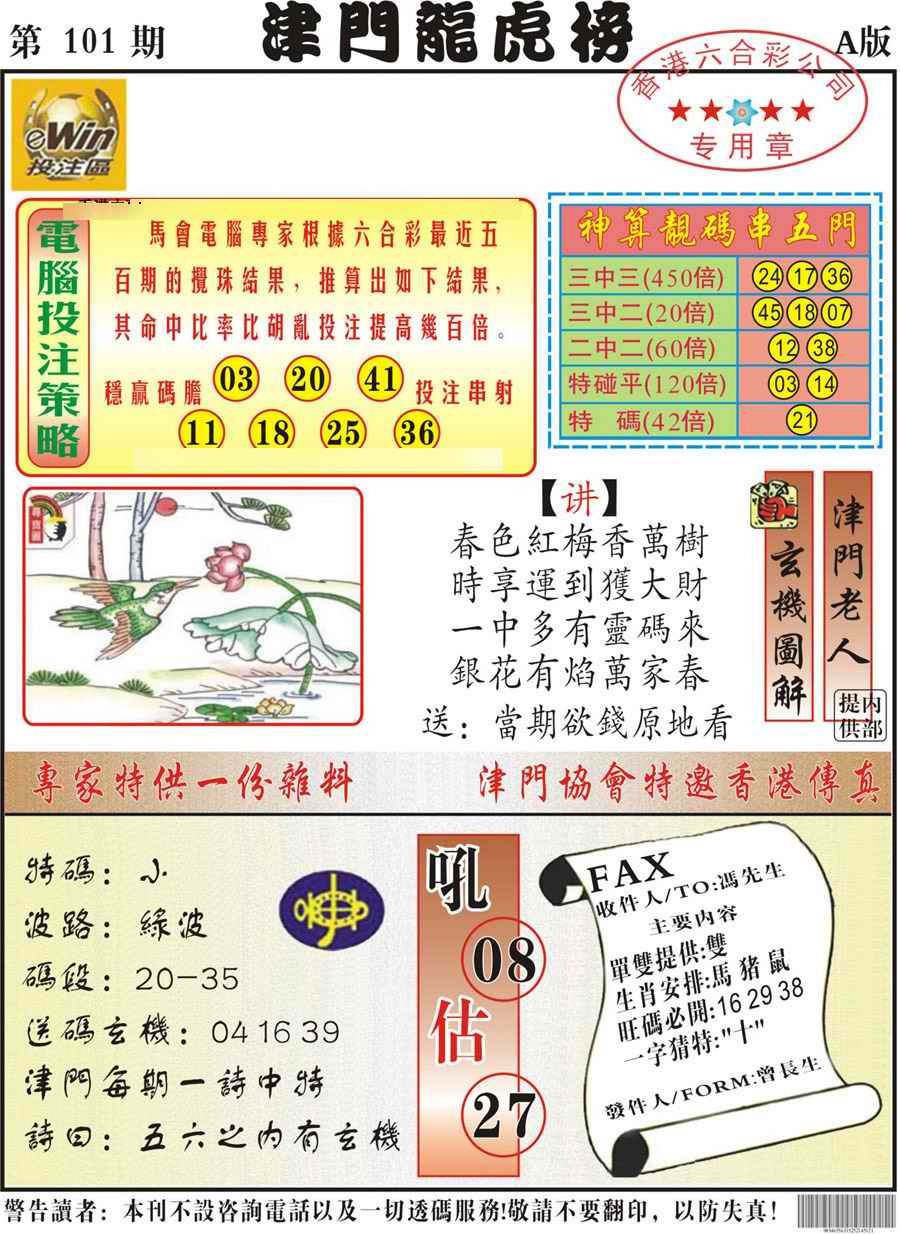 第 101 期
津門龍虎榜
A版
香港六合彩公司
专用章
eWin
投注區
電腦投注策略
馬會電腦專家根據六合彩最近五
百期的攪珠結果，推算出如下結果，
其命中比率比胡亂投注提高幾百倍。
穩贏碼膽 03 20 41 投注串射
11 18 25 36
神算靚碼串五門
三中三(450倍) 24 17 36
三中二(20倍) 45 18 07
二中二(60倍) 12 38
特碰平(120倍) 03 14
特 碼(42倍) 21
尋寶圖
【讲】
春色紅梅香萬樹
時享運到獲大財
一中多有靈碼來
銀花有焰萬家春
送：當期欲錢原地看
玄機圖解
津門老人
内部提供
專家特供一份雜料
津門協會特邀香港傳真
特碼：小
波路：綠波
碼段：20-35
送碼玄機：04 16 39
津門每期一詩中特
詩曰：五六之内有玄機
吼
08
估
27
FAX
收件人/TO:馮先生
主要内容
單雙提供:雙
生肖安排:馬 猪 鼠
旺碼必開:16 29 38
一字猜特:"十"
發件人/FORM:曾長生
警告讀者：本刊不設咨詢電話以及一切透碼服務!敬請不要翻印，以防失真!